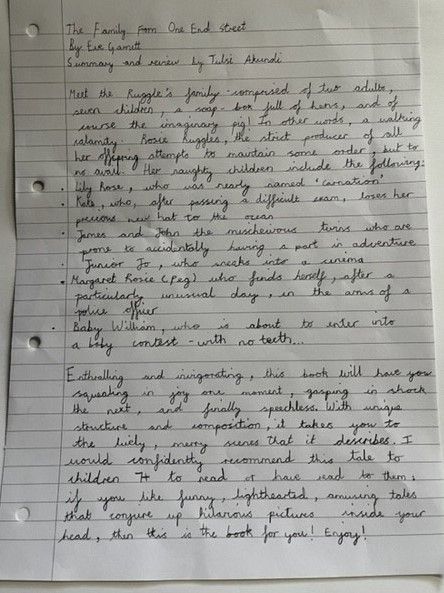 The Family from One End Street
By Eve Garnett
Summary and review by Tulsi Akundi
Meet the Ruggle's family - comprised of two adults,
seven children, a soap-box full of hens, and of
course the imaginary pig! In other words, a walking
calamity. Rosie Ruggles, the strict producer of all
her offspring attempts to maintain some order, but to
no avail. Her naughty children include the following:
• Lily Rose, who was nearly named 'carnation'
• Kate, who, after passing a difficult exam, loses her
precious new hat to the ocean
• James and John the mischevous twins who are
prone to accidentally having a part in adventure
• Junior Jo, who sneaks into a cinema
• Margaret Rosie (Peg) who finds herself, after a
particularly unusual day, in the arms of a
police officer
• Baby William, who is about to enter into
a baby contest - with no teeth...
Enthralling and invigorating, this book will have you
squealing in joy one moment, gasping in shock
the next, and finally speechless. With unique
structure and composition, it takes you to
the lively, merry scenes that it describes. I
would confidently recommend this tale to
children 7+ to read or have read to them;
if you like funny, lighthearted, amusing tales
that conjure up hilarous pictures inside your
head, then this is the book for you! Enjoy!